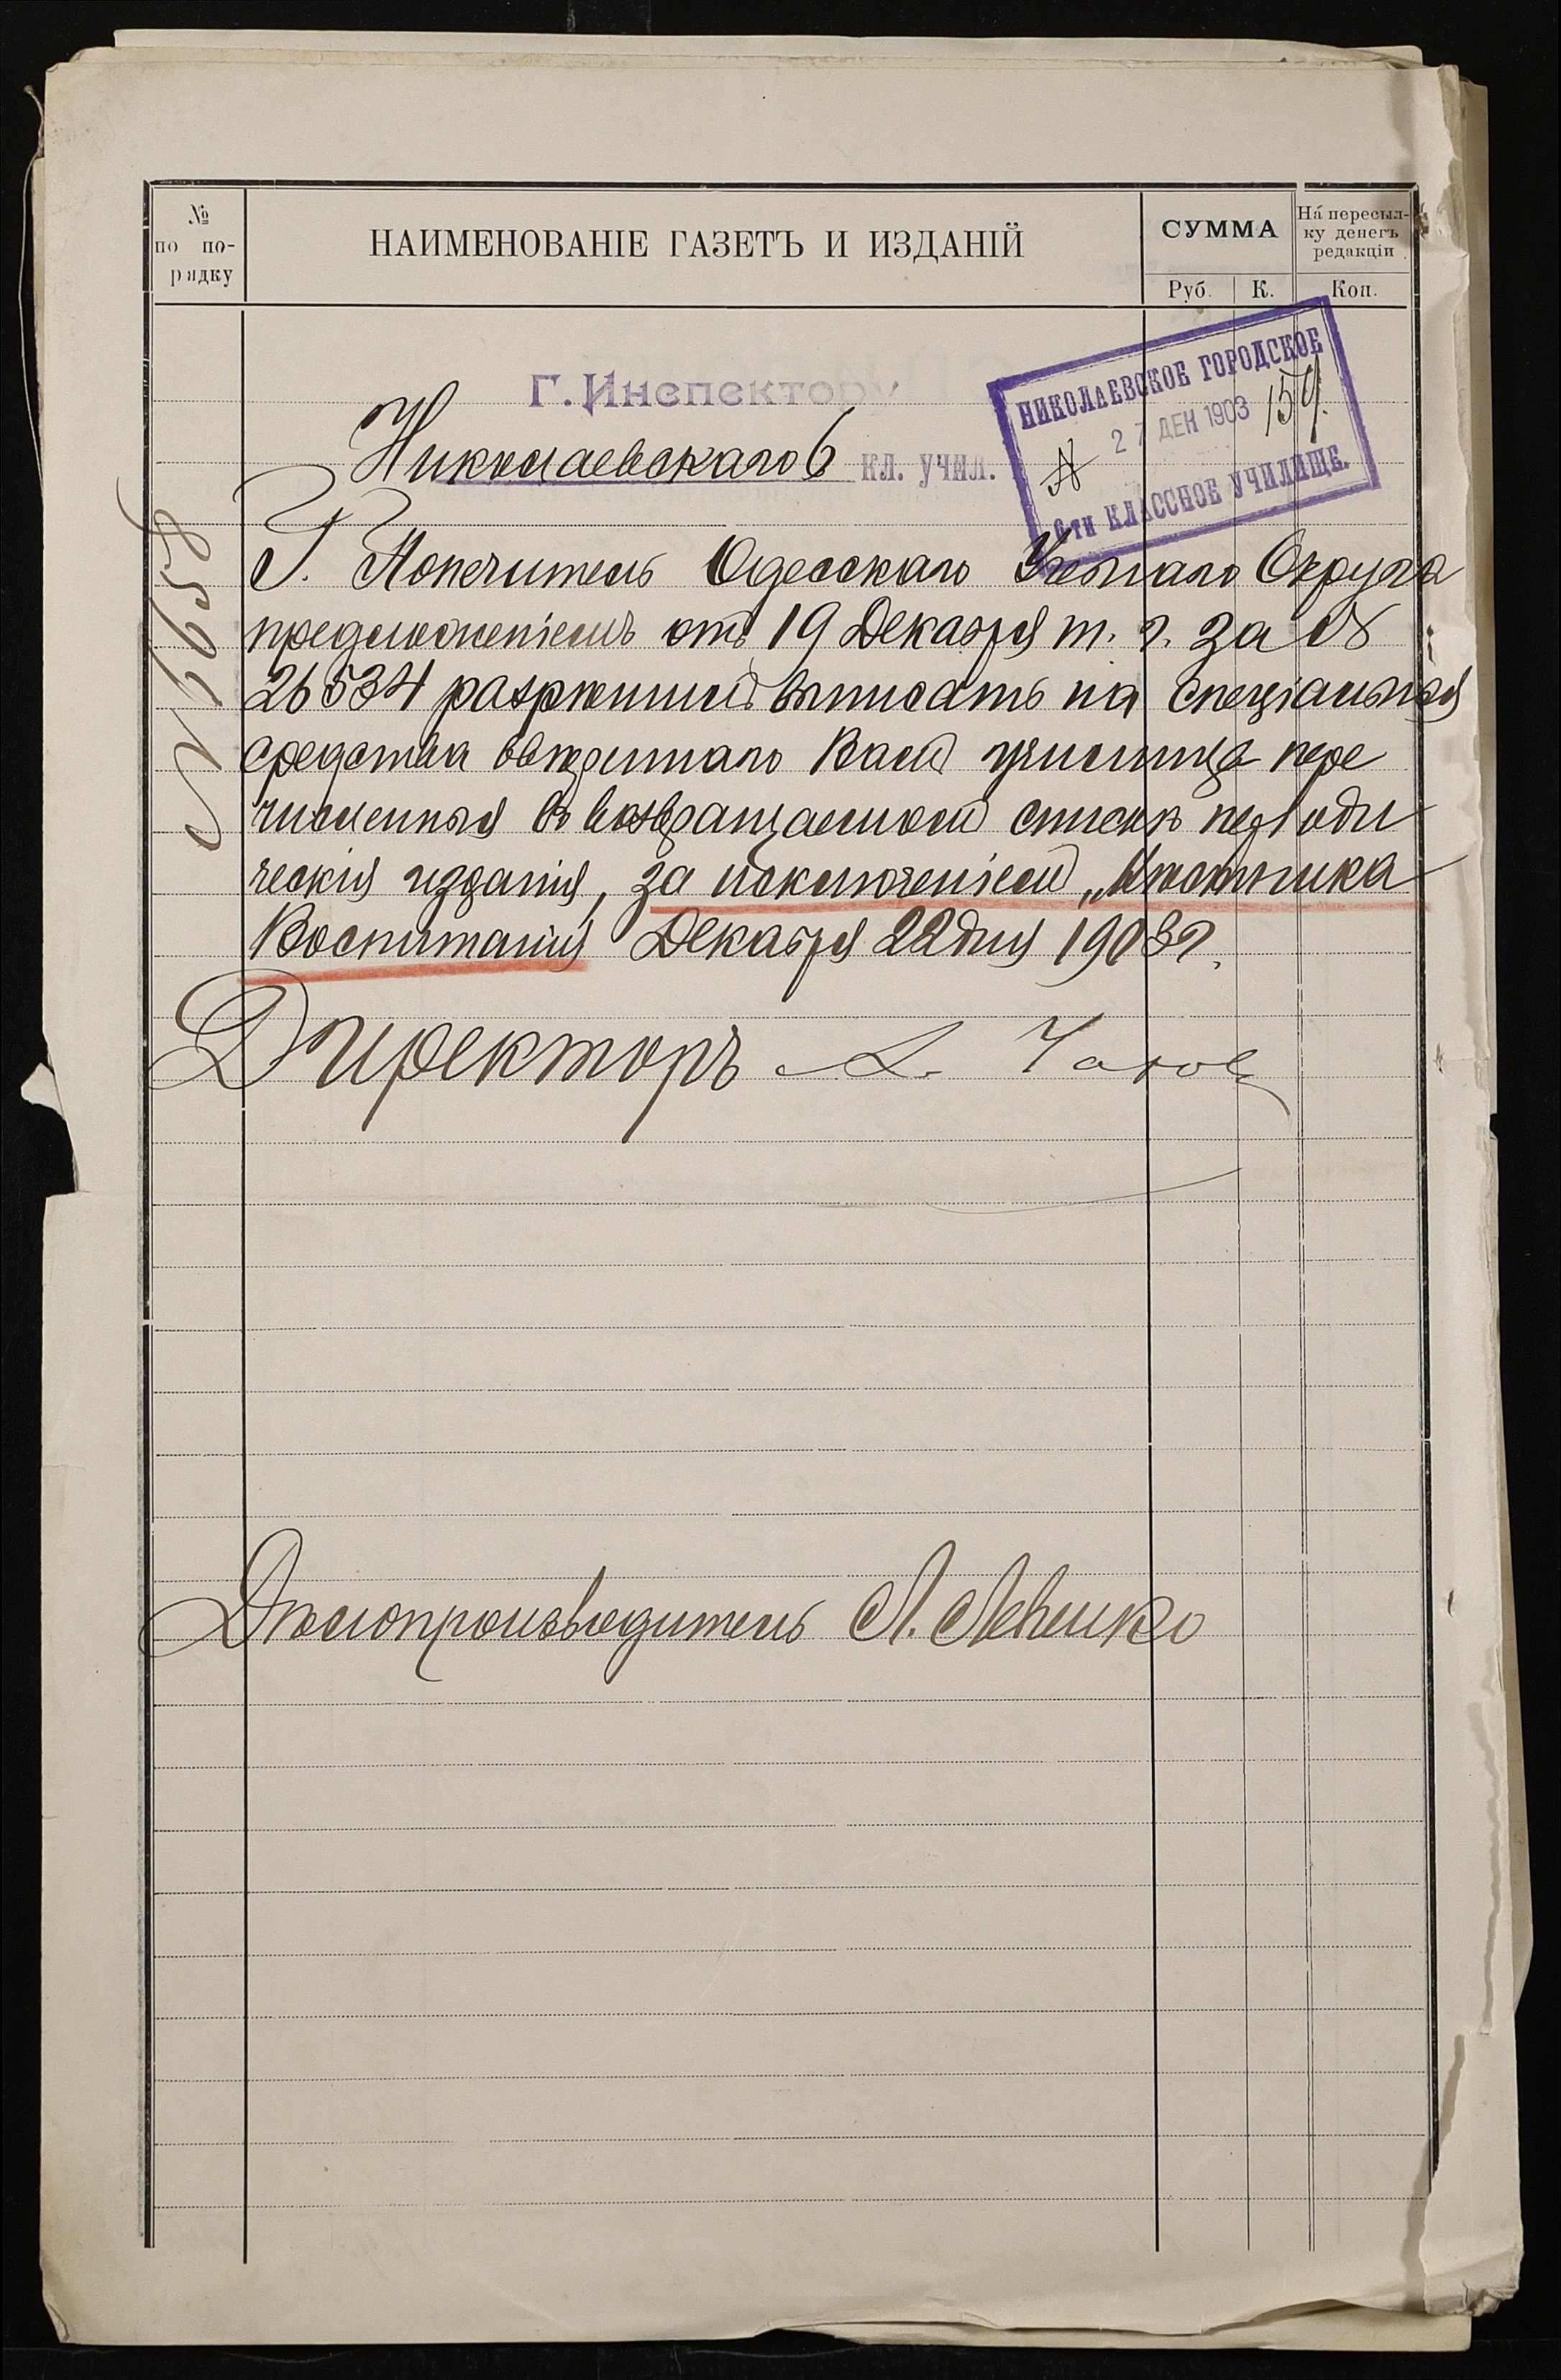 №
по по-
рядку
НАИМЕНОВАНІЕ ГАЗЕТЪ И ИЗДАНІЙ
СУММА
Руб. К.
На пересыл-
ку денегъ
редакціи
Коп.
Г. Инспектору
Николаевскаго 6 кл. учил.
НИКОЛАЕВСКОЕ ГОРОДСКОЕ
27 ДЕК 1903
№ 159.
6-ти КЛАССНОЕ УЧИЛИЩЕ.
№ 5658
Г. Попечитель Одесскаго Учебнаго Округа
предложеніемъ отъ 19 Декабря т. г. за №
26534 разрѣшилъ выписать на спеціальныя
средства ввѣреннаго Вамъ училища пере
численныя въ возвращаемомъ спискѣ періоди
ческія изданія, за исключеніемъ „Вѣстника
Воспитанія Декабря 22 дня 1903 г.
Директоръ А.
Дѣлопроизводитель Л. Левенко